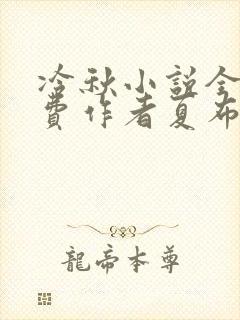 冷秋小説全
費作者夏布
龍帝本尊